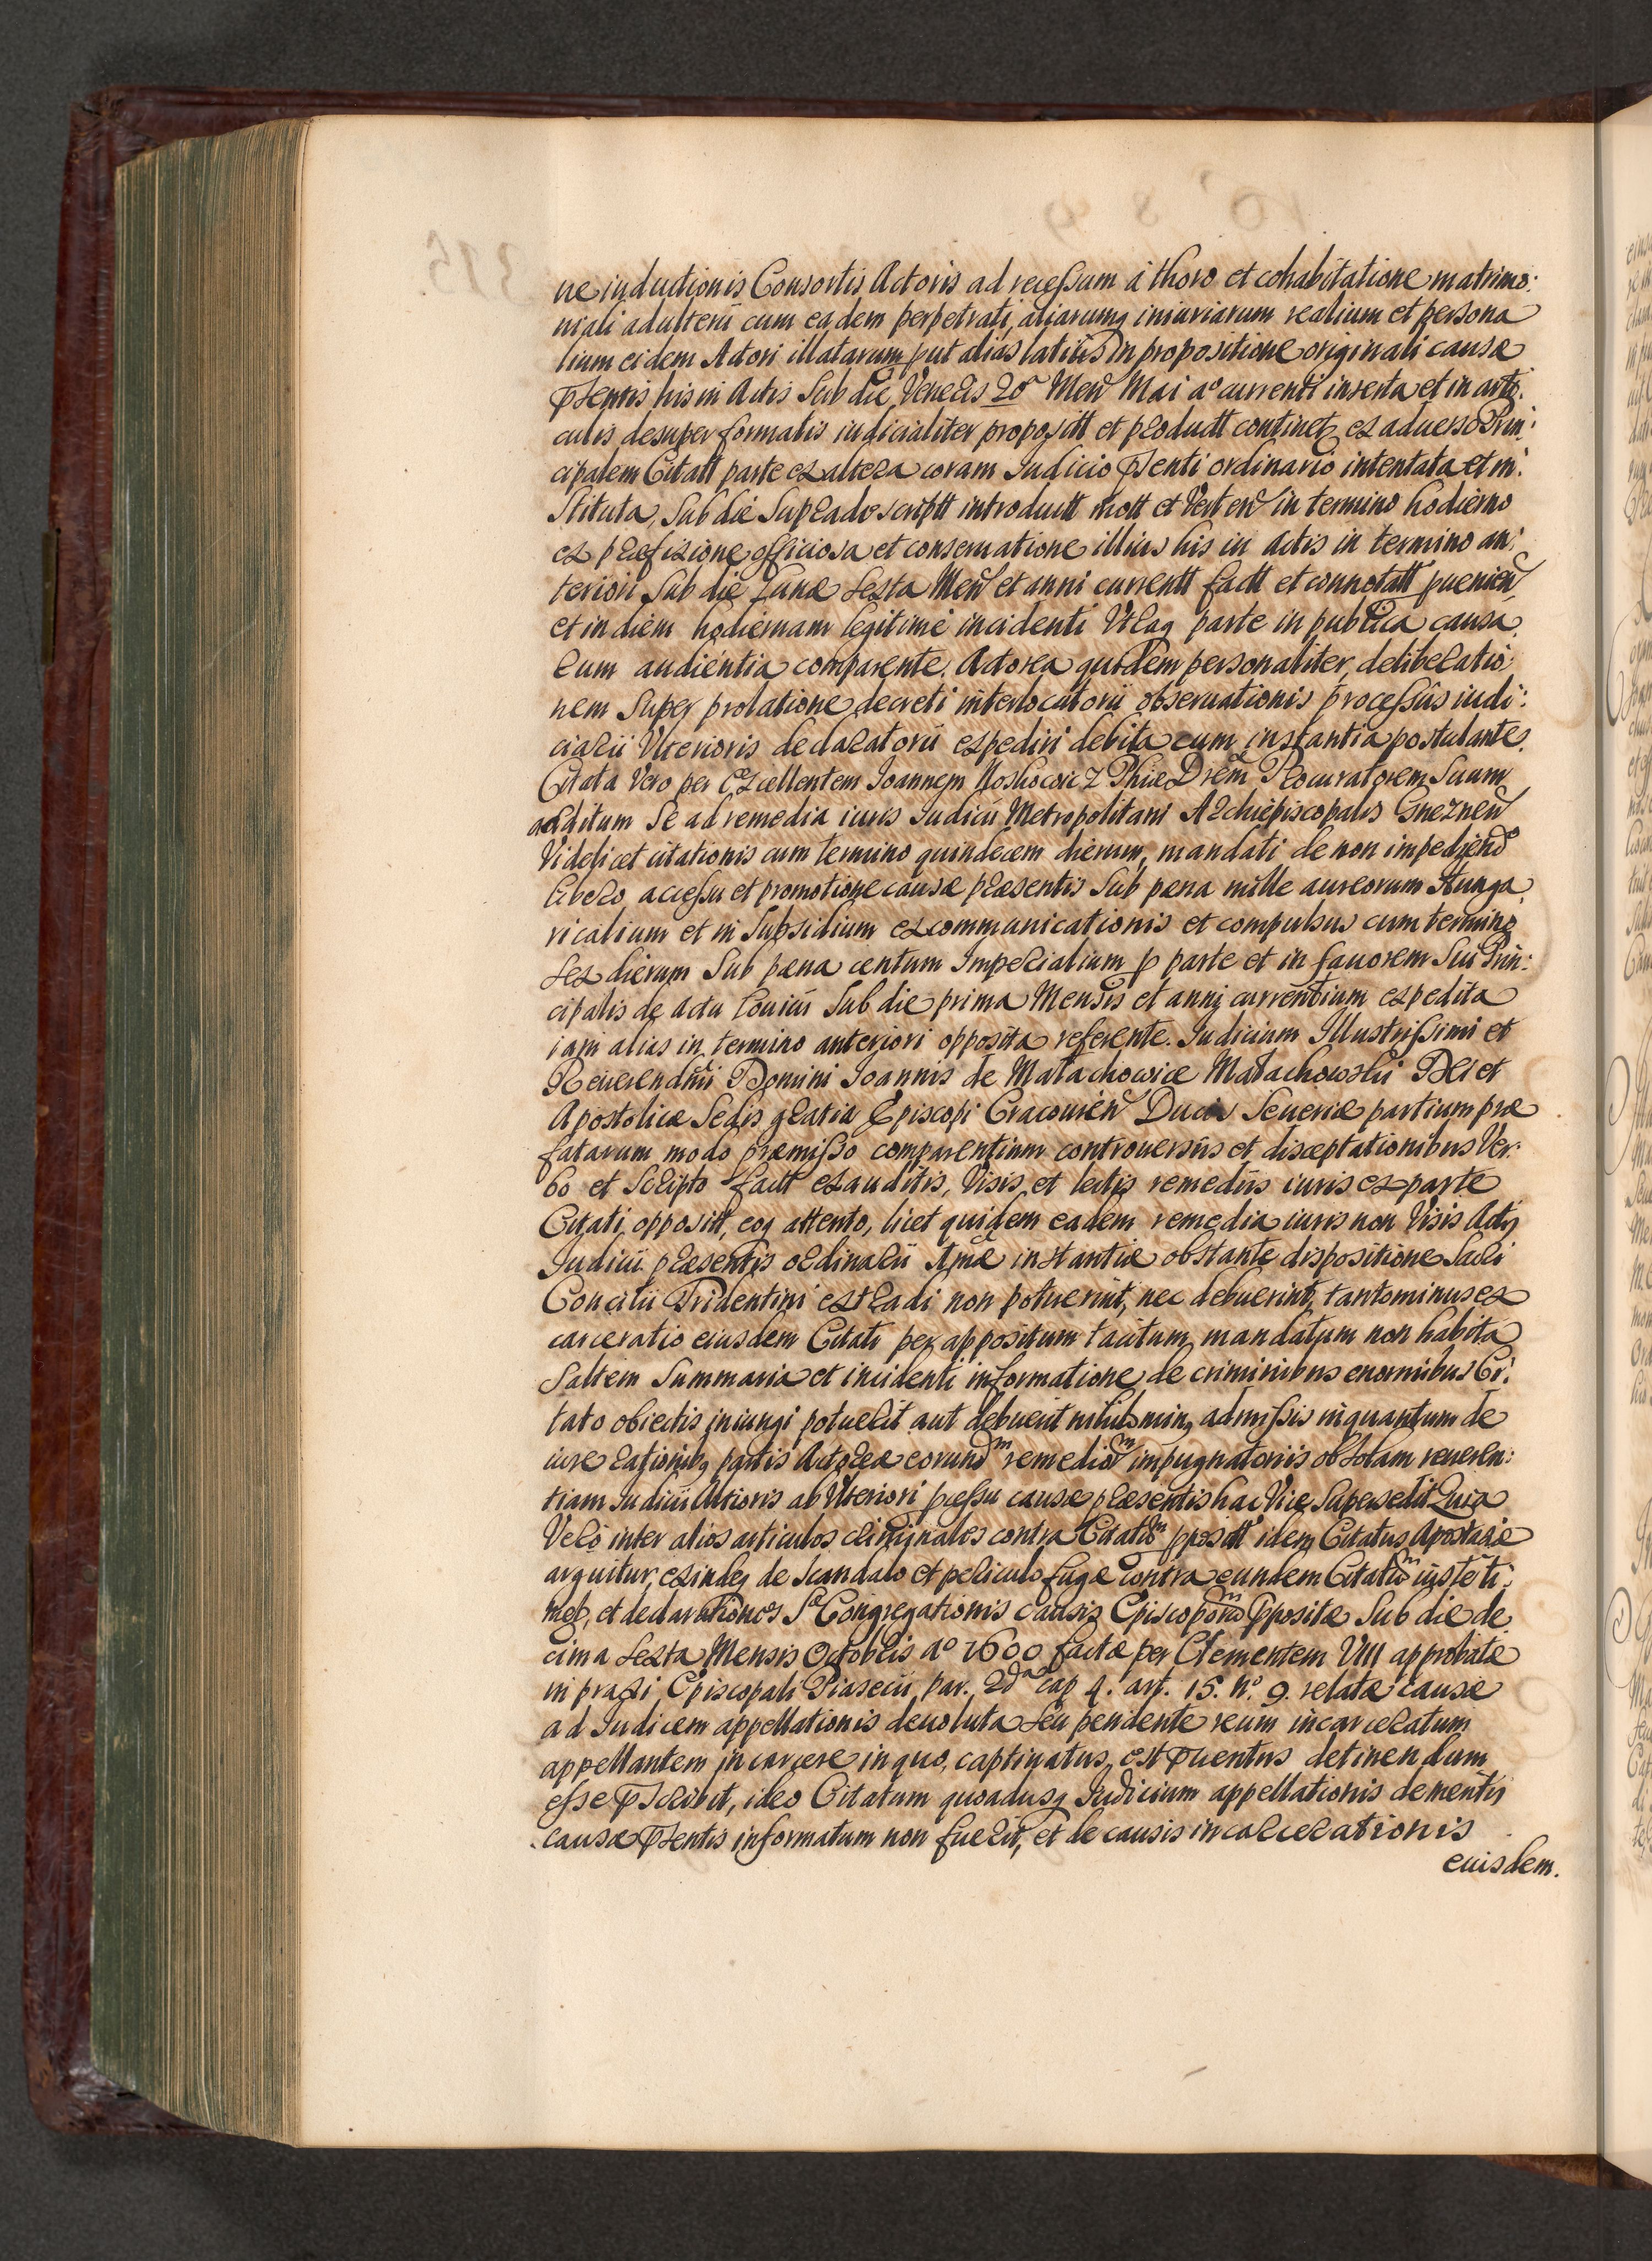 ne inductionis Consortis Actoris ad recessum à thoro et cohabitatione matrimo:
niali adulterii cum eadem perpetrati, aliarumq iniuriarum realium et persona
lium eidem Actori illatarum put alias latiùs in propositione originali causæ
pntis his in Actis Sub die Veneris 20a Men Mai ao currenti inserta et in arti:
culis desuper formatis iudicialiter propositt et productt continet, ex aduerso Prin:
cipalem Citatt parte ex altera coram Iudicio pnti ordinario intentata et in:
stituta, Sub die Supradoscriptt introductt mott et Verten in termino hodierno
ex præfixione officiosa et conseruatione illius his in Actis in termino an:
teriori Sub die Lunæ Sexta Men et anni currentt factt et connotatt puenien
et in diem hodiernam legitimè incidenti Vtraq parte in publica causa
rum audientia comparente. Actorea quidem personaliter, deliberatio:
nem Super prolatione decreti interlocutorii obseruationis processûs iudi:
ciarii Vlterioris declaratorii expediri debita cum instantia postulante.
Citata Vero per Excellentem Ioannem Phiæ Drem Procuratorem Suum
additum Se ad remedia iuris Iudicii Metropolitani Archiepiscopalis Gneznen
Videlicet citationis cum termino quindecem dierum, mandati de non impediendo
libero accessu et promotione causæ præsentis Sub pæna mille aureorum Hunga
ricalium et in Subsidium excommunicationis et compulsus cum termino
Sex dierum Sub pæna centum Imperialium p parte et in fauorem Sui Prin:
cipalis de actu Louicii Sub die prima Mensis et anni currentium expedita
iam alias in termino anteriori opposita referente. Iudicium Illustrissimi et
Reuerendmi Domini Ioannis de Małachowice Małachowski Dei et
Apostolicæ Sedis gratia Episcopi Cracouien Ducis Seueriæ partium præ
fatarum modo præmisso comparentium controuersiis et disceptationibus Ver:
bo et Scripto factt exauditis, Visis et lectis remediis iuris ex parte
Citati oppositt, eoq attento, licet quidem eadem remedia iuris non Visis Actis
Iudicii præsentis ordinarii 1mæ instantiæ obstante dispositione Sacri
Concilii Tridentini extradi non potuerint, nec debuerint, tanto minus ex
carceratio eiusdem Citati per appositum tacitum mandatum non habita
Saltem Summaria et incidenti informatione de criminibus enormibus Ci:
tato obiectis iniungi potuerit aut debuerit nihilominq admissis inquantum de
iure rationibq partis Actoreæ eorundm remediom impugnatoriis ob Solam reueren:
tiam Iudicii Altioris ab Vlteriori pcessu causæ præsentis hac Vice Supersedit. Quia
Verò inter alios articulos criminales contra Citatum ppositt idem Citatus Apostasiæ
arguitur, exindeq de Scandalo et periculo fugæ contra eundem Citatum iustè ti:
met, et declarationes Sæ Congregationis causis Episcoporum ppositæ Sub die de
cima Sexta Mensis Octobris ao 1600 factæ per Clementem VIII approbatæ
in praxi Episcopali Piasecii, par. 2da cap 4. art. 15. no. 9. relatæ causæ
ad Iudicem appellationis deuoluta Seu pendente reum incarceratum
appellantem in carcere in quo captiuatus est puentus detinendum
esse pscribit, ideo Citatum quoadusq Iudicium appellationis de meritis
causæ pntis informatum non fuerit, et de causis incarcerationis
eiusdem.